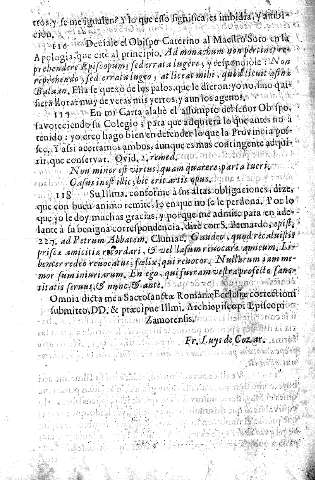 tros, y se me igualen? Y lo que esso significa es imbidia, y ambi-
cion.
116 Deziale el Obispo Caterino al Maestro Soto en la
Apologia, que cité al principio, Ad monachum non pertinet re-
prehendere Episcopum, sed errata lugere; y respondiole: Non
reprehendo, sed errata lugeo, at liceat mihi, quod licuit asinæ
Balaan. Ella se quexò de los palos, que le dieron; yo no, sino qui-
siera llorar muy de veras mis yerros, y aun los agenos.
117 En mi Carta alabè el assumpto del señor Obispo,
favoreciendo su Colegio; para que adquiriera lo que antes no a
tenido: yo creo hago bien en defender lo que la Provincia pos-
see. Y assi acertamos ambos, aunque es mas contingente adqui-
rir, que conservar. Ovid. 2. remed.
Non minor est virtus, quam quærere parta tueri,
Casus inest illic, hic erit artis opus.
118 Su Ilma. conforme a sus altas obligaciones, dize,
que con buen animo remite, lo en que no se le perdona. Y por lo
que yo le doy muchas gracias, y porque me admite para en ade-
lante à su benigna correspondencia, dirè con S. Bernardo, epist.
227. ad Petrum Abbatem, Cluniac. Gaudeo, quod recaluistis
priscæ amicitiæ recordari, & vel læsum revocare amicum. Li-
benter redeo revocatus; fœlix, qui revocor. Nullarum iam me-
mor sum iniuriarum. En ego, qui fueram vestra profecto sanc-
titatis servus, & nunc, & ante.
Omnia dicta mea Sacrosanctæ Romanæ Ecclesiæ correctioni
submitto, DD. & præcipue Illmi. Archiepiscopi Episcopi
Zamorensis.
Fr. Luys de Cozar.